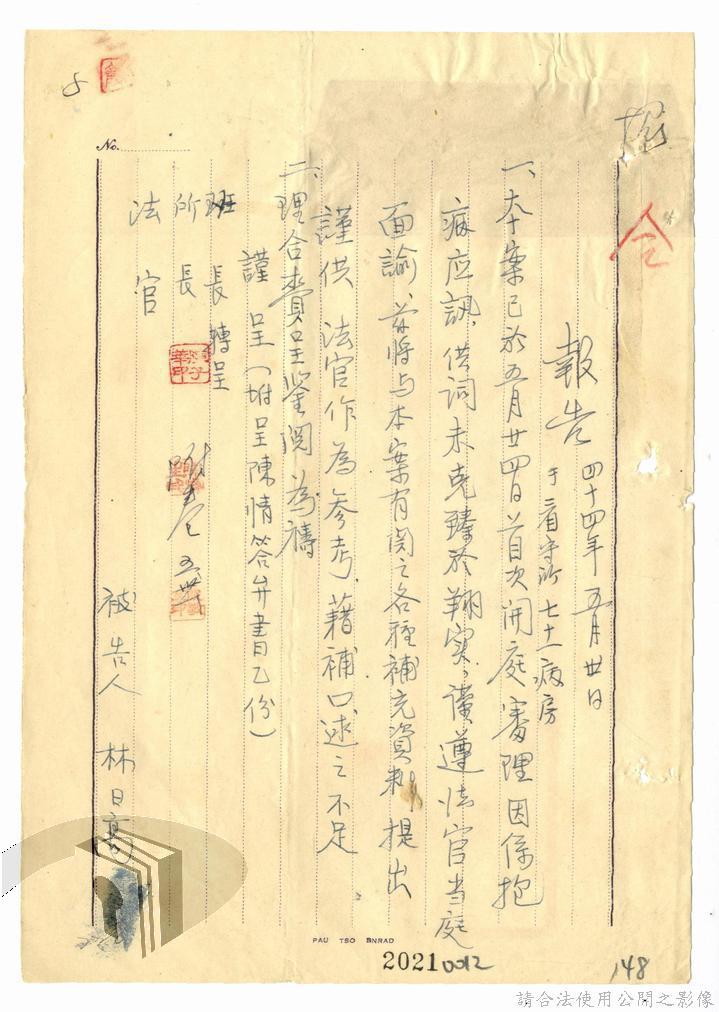 報告 四十四年五月廿日
于看守所七十一病房
一、本案已於五月廿四日首次開庭審理因係抱
病应訊、供词未克臻於翔实、謹遵法官当庭
面諭、茲將与本案有関之各種補充資料提出
謹供 法官作為參考、藉補口述之不足
二、理合賫呈鉴閱為禱
謹呈(附呈陳情答弁書乙份)
班長轉呈
所長
法官
被告人 林日高
No.
PAU TSO BNRAD
20210012
148
請合法使用公開之影像